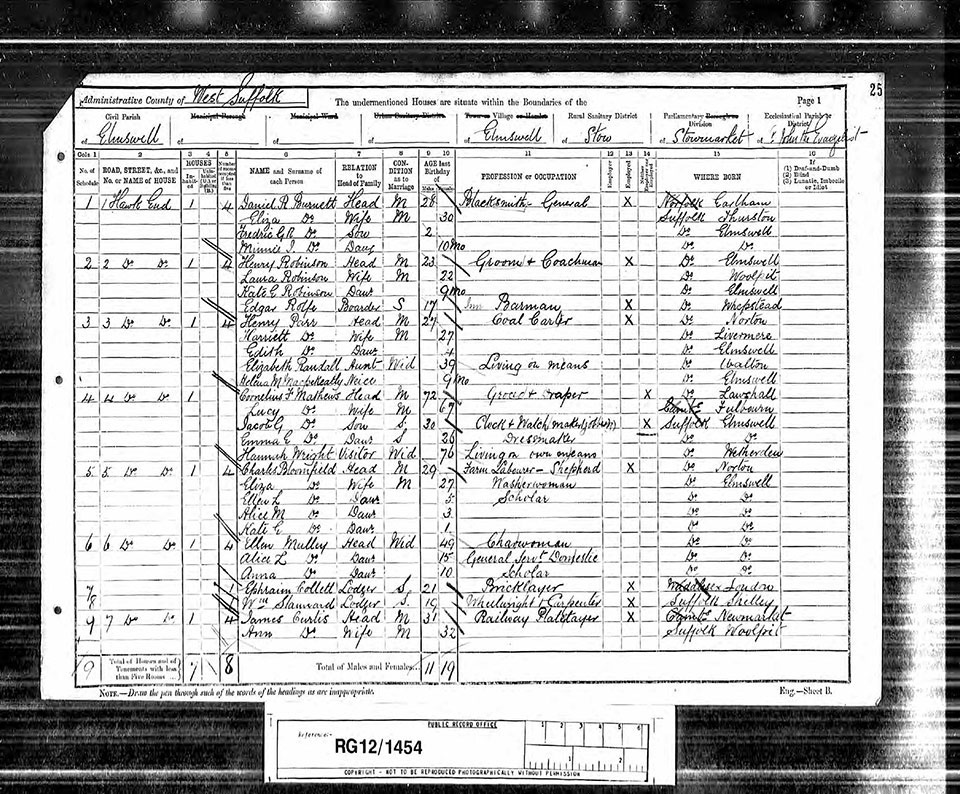 25
Administrative County of West Suffolk
The undermentioned Houses are situate within the Boundaries of the
Page 1
Civil Parish
Municipal Borough
Municipal Ward
Urban Sanitary District
Town or Village or Hamlet
Rural Sanitary District
Parliamentary Borough or Division
Ecclesiastical Parish or District
of Elmswell
of
of
of
of Elmswell
of Stow
of Stowmarket
of
Cols 1 2 3 4 5 6 7 8 9 10 11 12 13 14 15 16
No. of Schedule
ROAD, STREET, &c., and No. or NAME of HOUSE
HOUSES
In-habit-ed
NAME and Surname of each Person
RELATION to Head of Family
CON-DITION as to Marriage
AGE last Birthday of
Males Females
PROFESSION or OCCUPATION
Employer
Employed
WHERE BORN
If (1) Deaf-and-Dumb (2) Blind (3) Lunatic, Imbecile or Idiot
1 1 Hawk End 1 4 Daniel R Burnett Head M 28 Blacksmith - General X Norfolk Earlham
Eliza Do Wife M 30 Suffolk Thurston
Fredric G R Do Son 2 Do Elmswell
Minnie I Do Daur 10 Mo Do Do
2 2 Do Do 1 4 Henry Robinson Head M 23 Groom & Coachman X Do Elmswell
Laura Robinson Wife M 22 Do Woolpit
Kate E Robinson Daur 9 Mo Do Elmswell
Edgar Rolfe Boarder S 17 Inn Barman X Do Whepstead
3 3 Do Do 1 4 Henry Parr Head M 27 Coal Carter X Do Norton
Harriett Do Wife M 27 Do Livermere
Edith Do Daur 4 Do Elmswell
Elizabeth Randall Aunt Wid 39 Living on means Do Walton
Helena M Neice 9 Mo Do Elmswell
4 4 Do Do 1 Cornelius F Mathews Head M 72 Grocer & Draper X Do Lawshall
Lucy Do Wife M 67 Cambs Fulbourn
Jacob G Do Son S 30 Clock & Watch maker X Suffolk Elmswell
Emma E Do Daur S 26 Dressmaker Do Do
Hannah Wright Visitor Wid 76 Living on own means Do Wetherden
5 5 Do Do 1 4 Charles Bloomfield Head M 29 Farm Labourer - Shepherd X Do Norton
Eliza Do Wife M 27 Washerwoman Do Elmswell
Ellen L Do Daur 5 Scholar Do Do
Alice M Do Daur 3 Do Do
Kate E Do Daur 1 Do Do
6 6 Do Do 1 4 Ellen Mulley Head Wid 49 Charwoman Do Do
Alice L Do Daur 15 General Servt Domestic Do Do
Anna Do Daur 10 Scholar Do Do
7 Ephraim Collett Lodger S 21 Bricklayer X Middlesex London
8 Wm Stannard Lodger S 19 Wheelwright & Carpenter X Suffolk Shelley
9 7 Do Do 1 4 James Curtis Head M 31 Railway Platelayer X Cambs Newmarket
Ann Do Wife M 32 Suffolk Woolpit
9 Total of Houses and of Tenements with less than Five Rooms 7 8 Total of Males and Females 11 19
NOTE.—Draw the pen through such of the words of the headings as are inappropriate.
Eng.—Sheet B.
PUBLIC RECORD OFFICE
Reference:-
RG12/1454
1 2 3 4 5 6
1 2
COPYRIGHT - NOT TO BE REPRODUCED PHOTOGRAPHICALLY WITHOUT PERMISSION